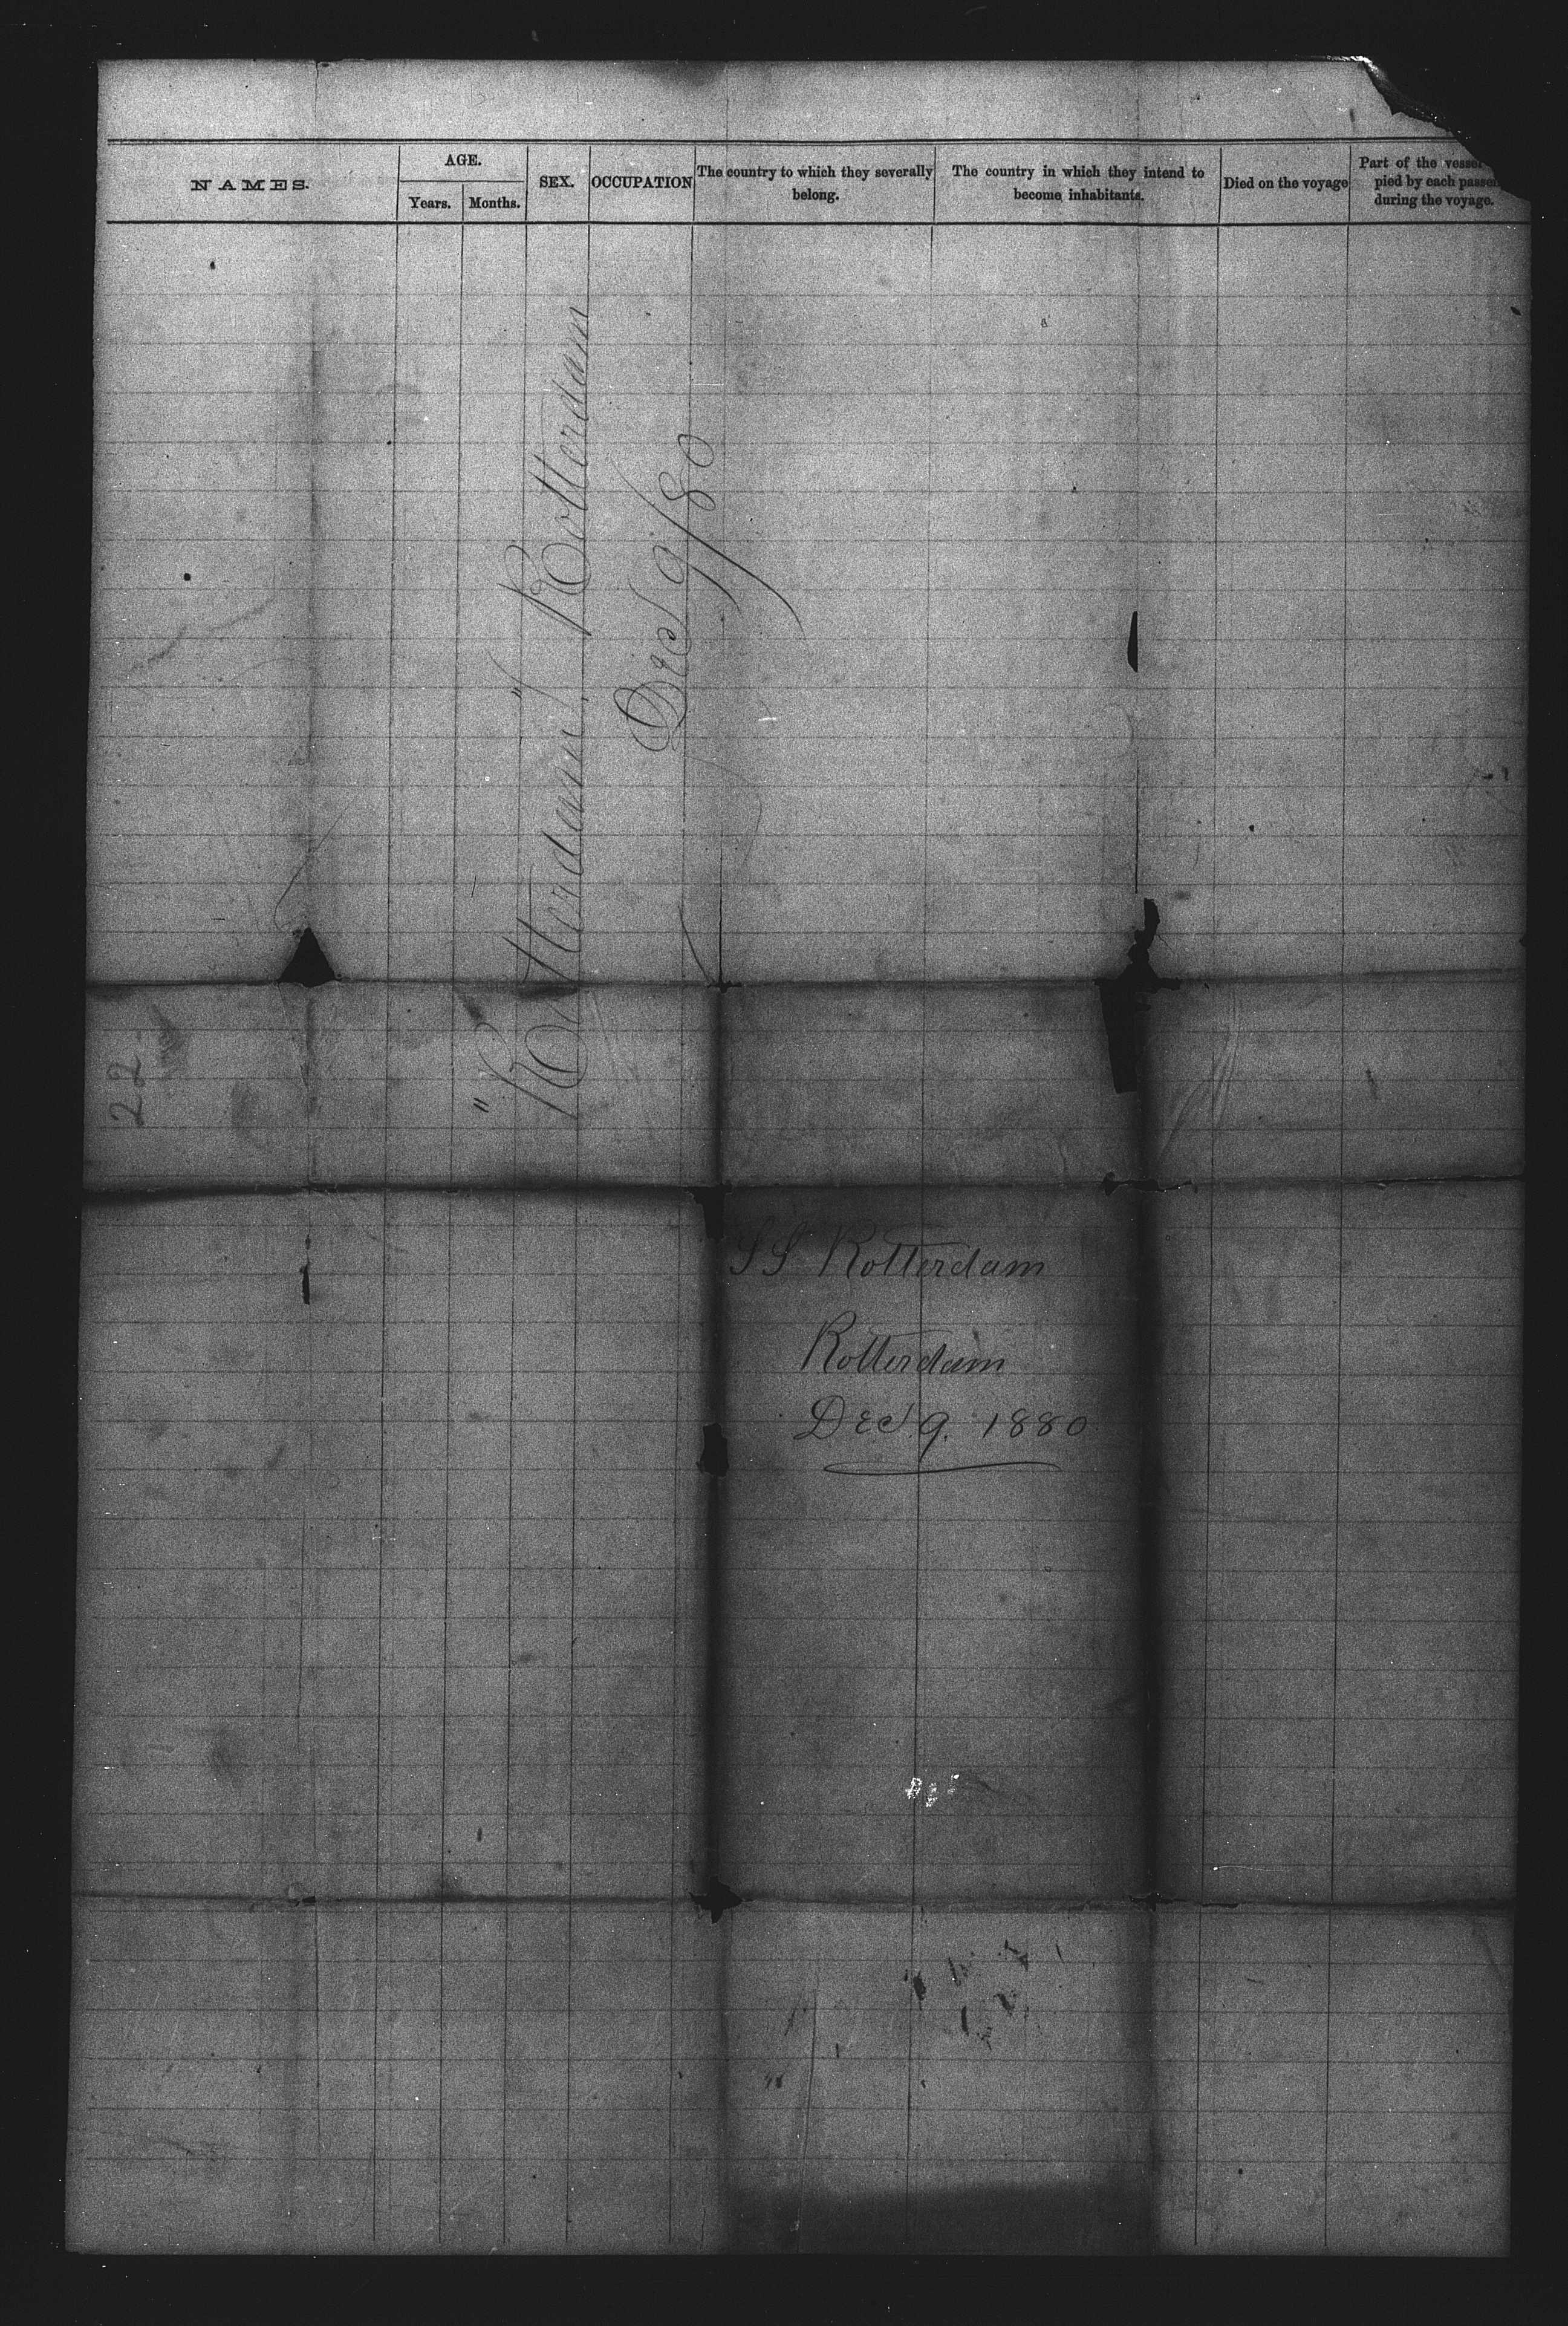 NAMES.
AGE.
Years.
Months.
SEX.
OCCUPATION
The country to which they severally
belong.
The country in which they intend to
become inhabitants.
Died on the voyage
Part of the vessel
pied by each passen
during the voyage.
"Rotterdam" Rotterdam
Dec 9/80
22
SS Rotterdam
Rotterdam
Dec 9. 1880